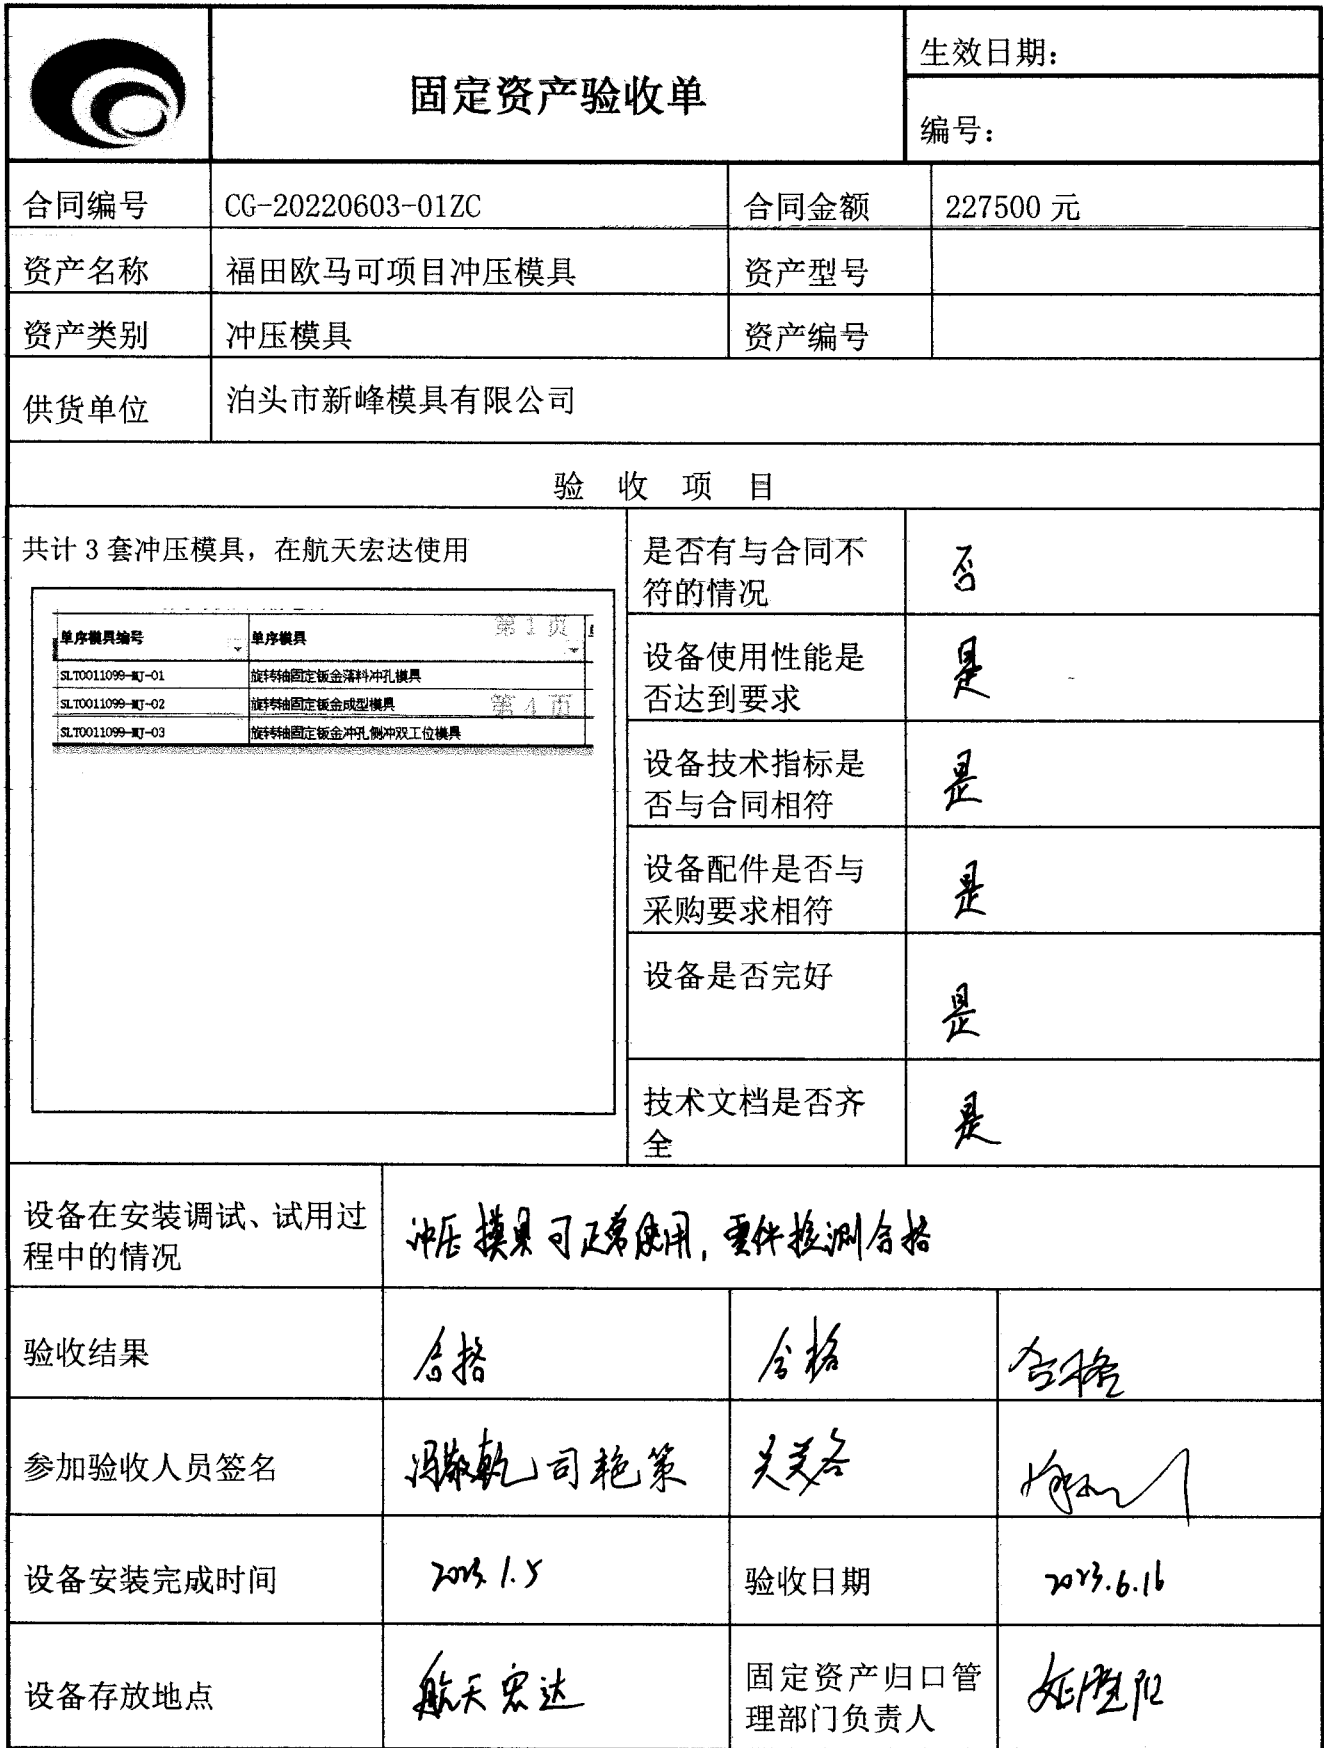 固定资产验收单
生效日期：
编号：
合同编号 CG-20220603-01ZC 合同金额 227500 元
资产名称 福田欧马可项目冲压模具 资产型号
资产类别 冲压模具 资产编号
供货单位 泊头市新峰模具有限公司
验 收 项 目
共计 3 套冲压模具，在航天宏达使用
单序模具编号 单序模具
第 1 页
SLT0011099-MJ-01 旋转轴固定钣金落料冲孔模具
SLT0011099-MJ-02 旋转轴固定钣金成型模具
第 4 页
SLT0011099-MJ-03 旋转轴固定钣金冲孔侧冲双工位模具
是否有与合同不
符的情况
否
设备使用性能是
否达到要求
是
设备技术指标是
否与合同相符
是
设备配件是否与
采购要求相符
是
设备是否完好
是
技术文档是否齐
全
是
设备在安装调试、试用过
程中的情况
冲压模具可正常使用，零件检测合格
验收结果 合格 合格 合格
参加验收人员签名 冯敬乾 司艳策
设备安装完成时间 2023.1.5 验收日期 2023.6.16
设备存放地点 航天宏达
固定资产归口管
理部门负责人